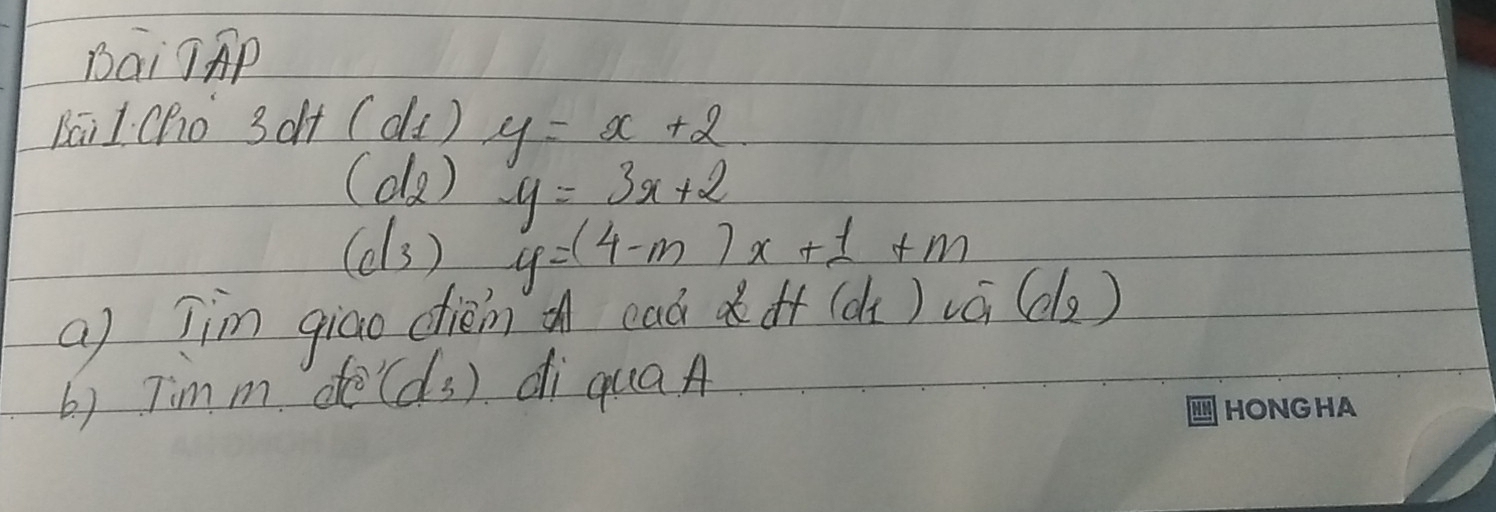 Bài TẬP
Bài 1. Cho 3 đt (d1) y = x + 2
(d2) y = 3x + 2
(d3) y = (4 - m) x + 1 + m
a) Tìm giao điểm A của 2 đt (d1) và (d2)
b) Tìm m để (d3) đi qua A
HONG HA